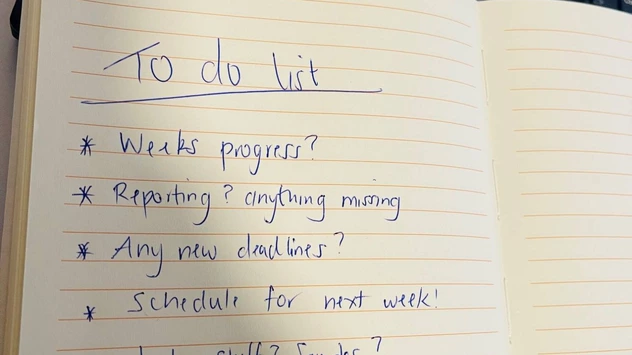 To do list
* Weeks progress?
* Reporting? anything missing
* Any new deadlines?
* Schedule for next week!